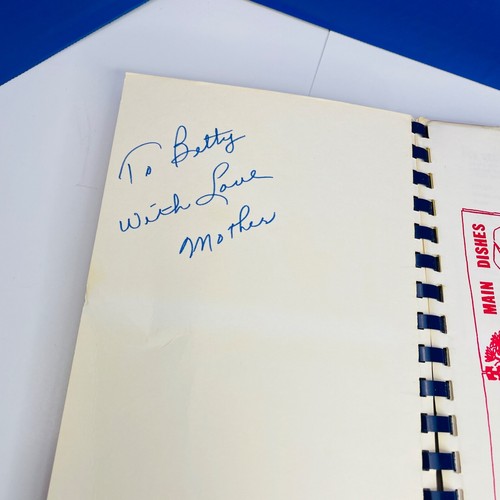 To Betty
With Love
Mother
MAIN DISHES